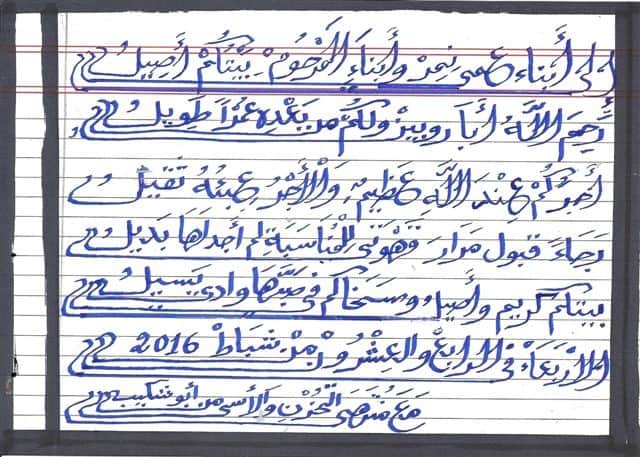 إلى أبناء عمي نمر وأبناء المرحوم بيتكم أصيل
رحم الله أبا روبين ولكم من بعده عمراً طويل
أجركم عند الله عظيم والأجر عبئه ثقيل
رجاء قبول مرارة قهوتي للمناسبة لم أجد لها بديل
بيتكم كريم وأصيل وسخاكم في صبّها وادي يسيل
الأربعاء في الرابع والعشرون من شباط 2016
مع الحزن والأسى من أبو شكيب